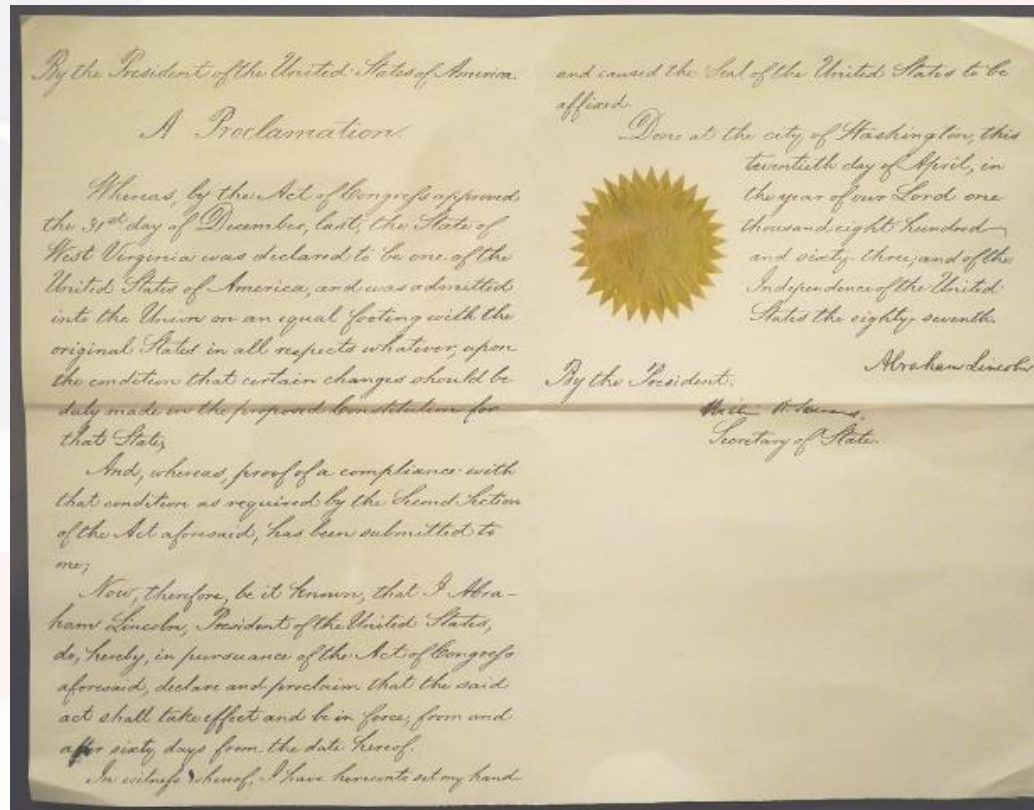 By the President of the United States of America.
A Proclamation.
Whereas, by the Act of Congress approved
the 31st day of December, last, the State of
West Virginia was declared to be one of the
United States of America, and was admitted
into the Union on an equal footing with the
original States in all respects whatever, upon
the condition that certain changes should be
duly made in the proposed Constitution for
that State;
And, whereas, proof of a compliance with
that condition as required by the Second Section
of the Act aforesaid, has been submitted to
me;
Now, therefore, be it known, that I Abra-
ham Lincoln, President of the United States,
do, hereby, in pursuance of the Act of Congress
aforesaid, declare and proclaim that the said
act shall take effect and be in force, from and
after sixty days from the date hereof.
In witness whereof, I have hereunto set my hand
and caused the Seal of the United States to be
affixed.
Done at the city of Washington, this
twentieth day of April, in
the year of our Lord one
thousand eight hundred
and sixty-three, and of the
Independence of the United
States the eighty-seventh.
Abraham Lincoln
By the President:
William H. Seward,
Secretary of State.